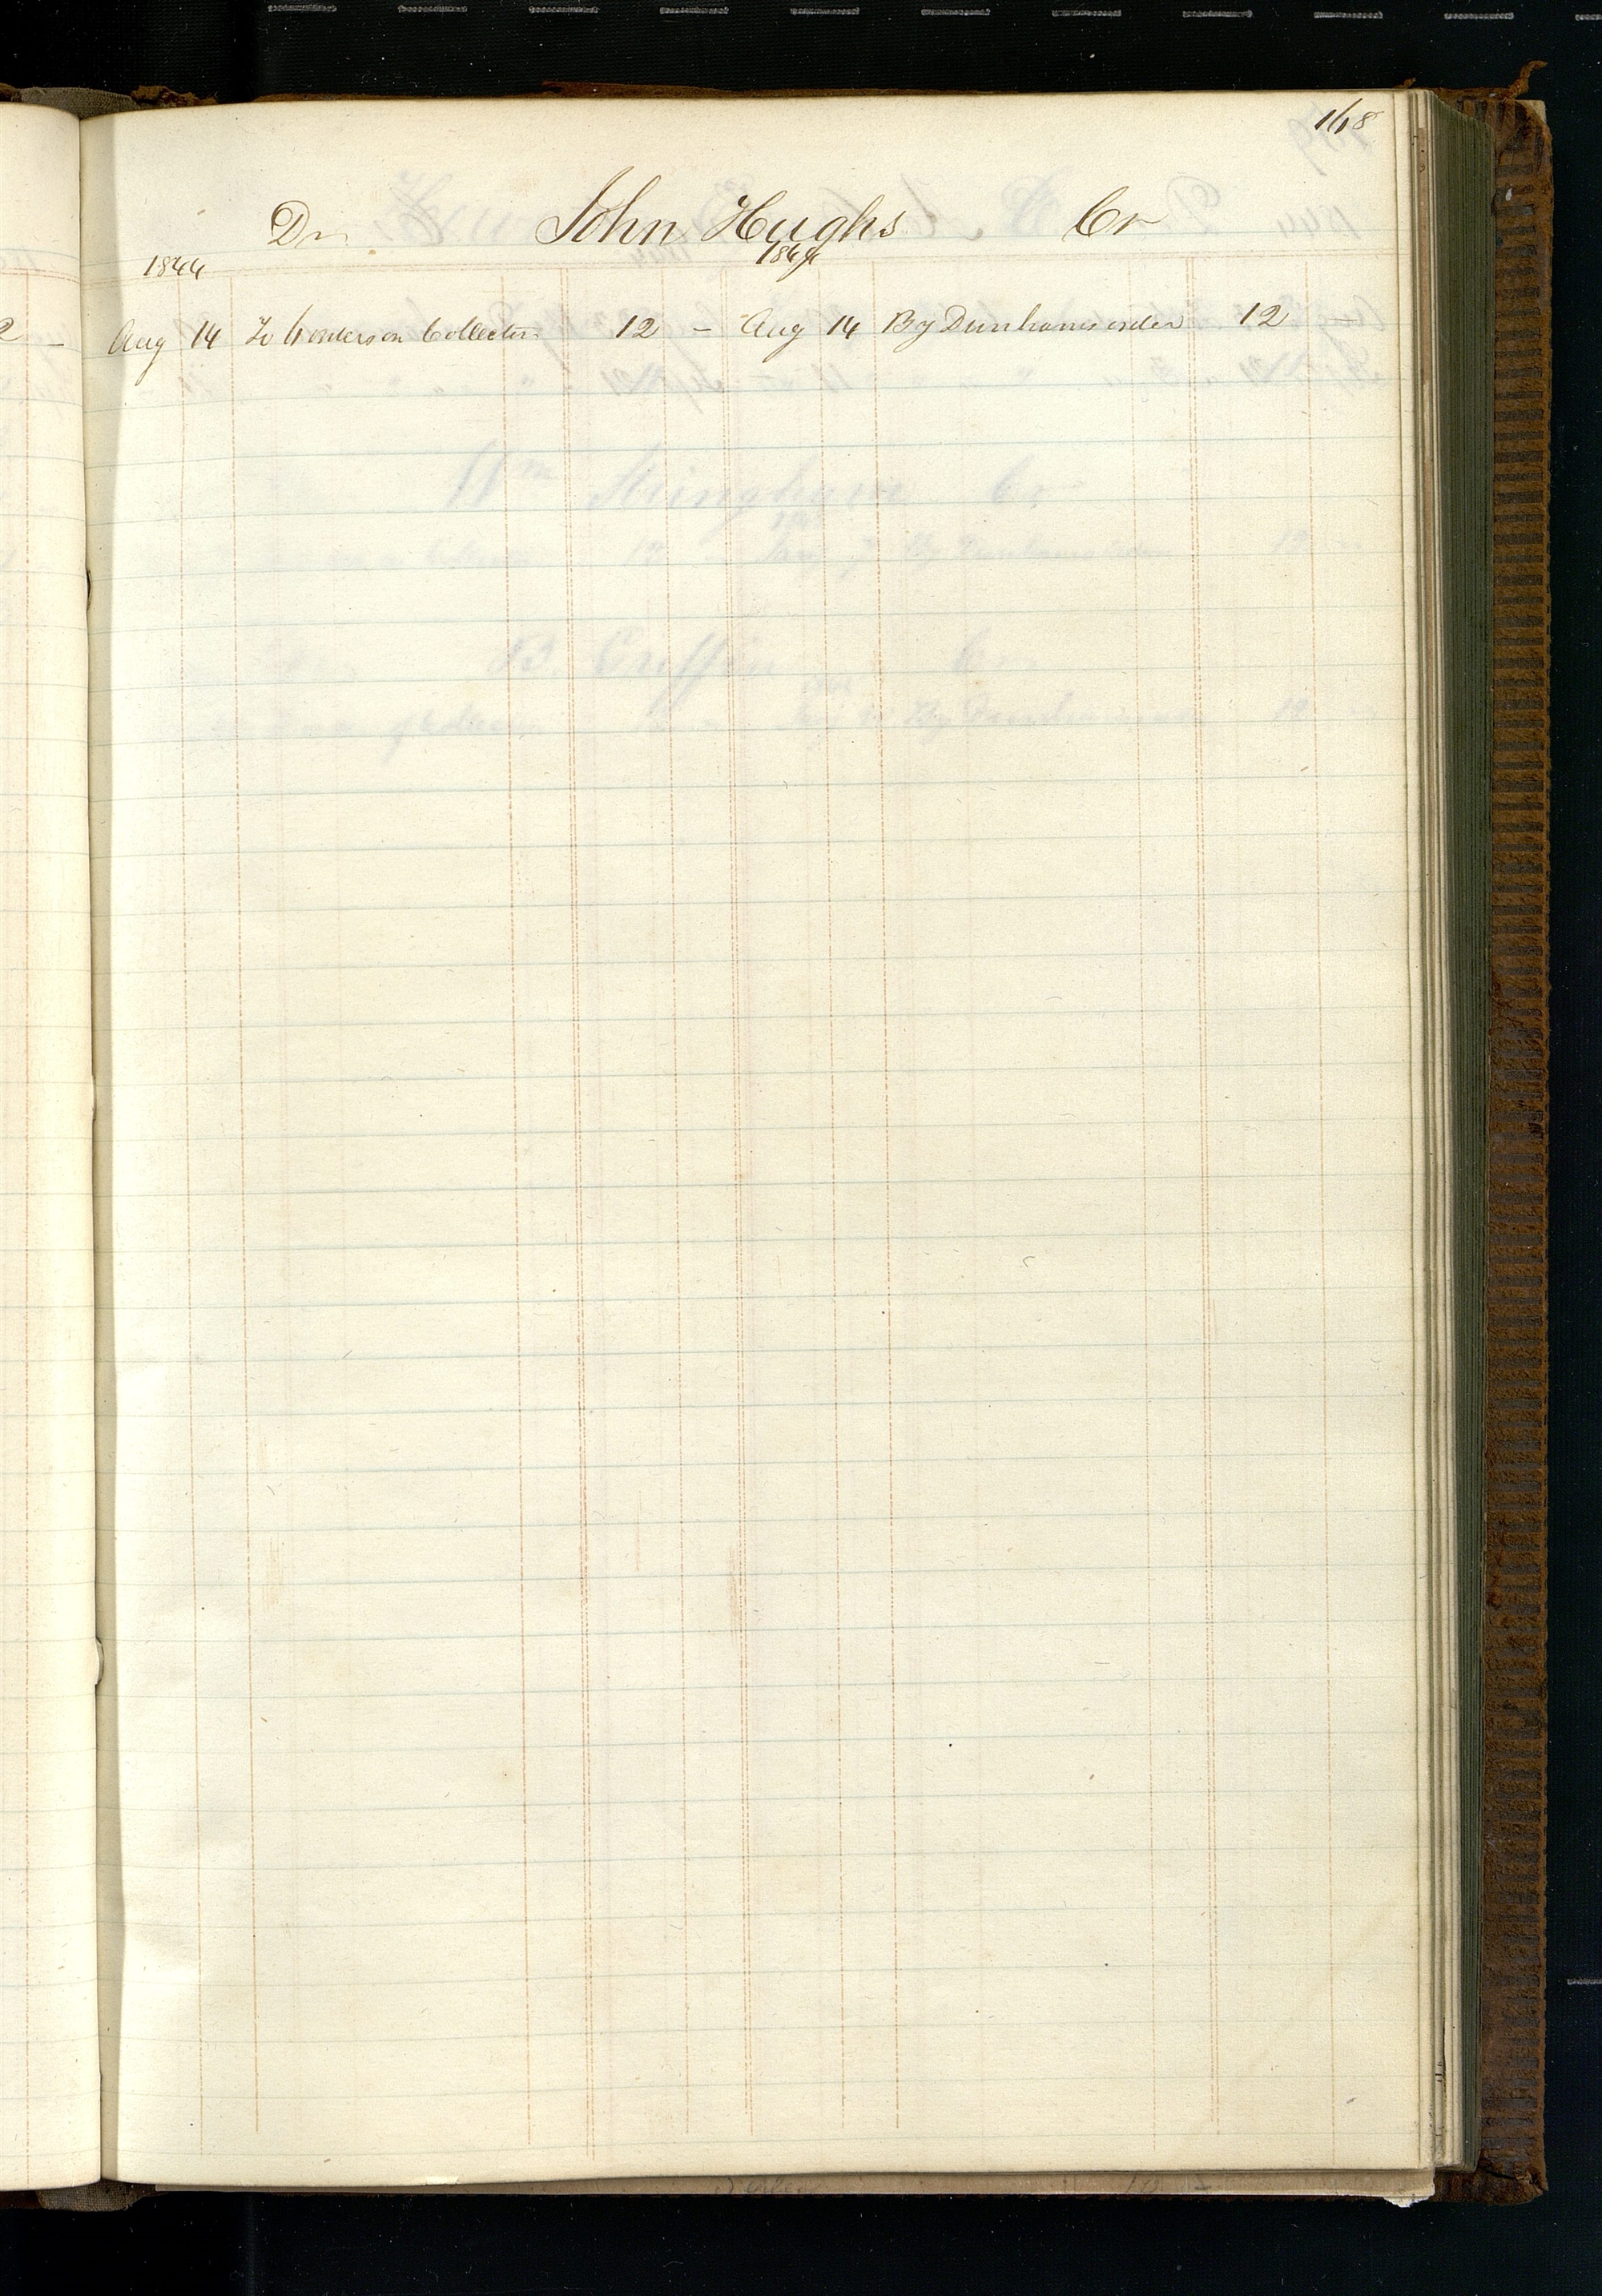 168
Dr John Hughs Cr
1844 1844
Aug 14 To Collector 12 – Aug 14 By Dunhams order 12 –